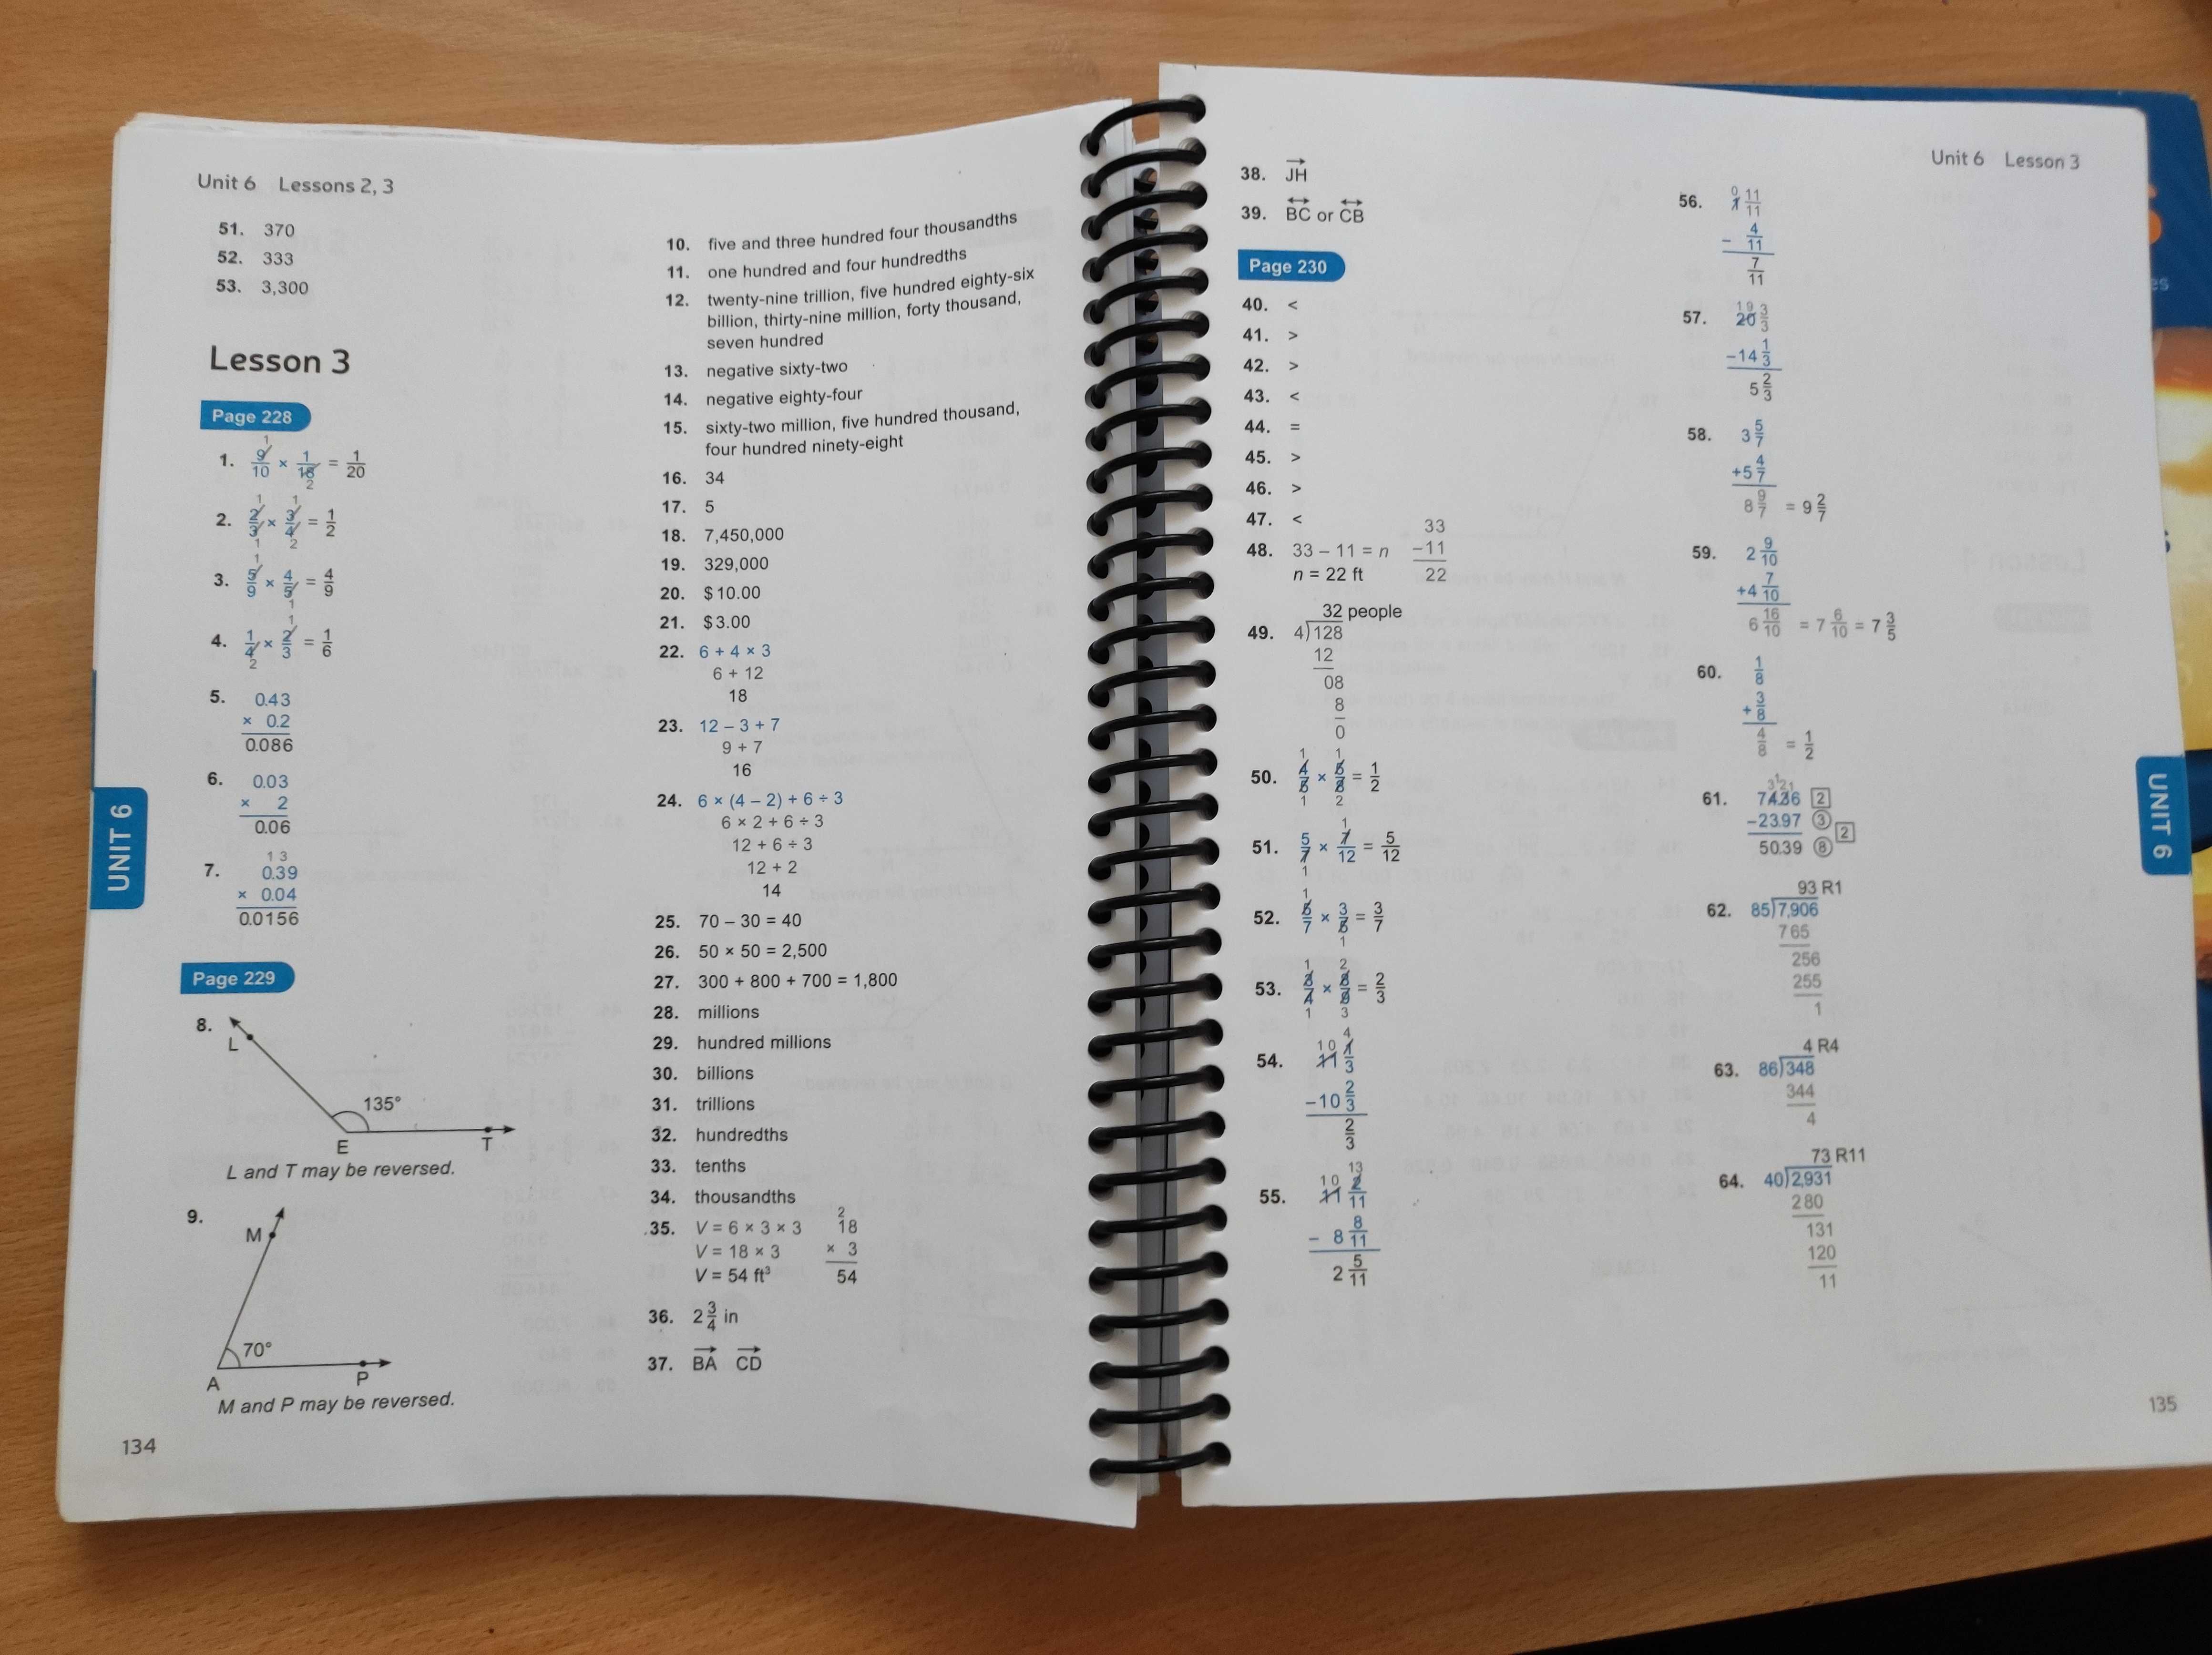 Unit 6 Lessons 2, 3
51. 370
52. 333
53. 3,300
Lesson 3
Page 228
1. 9/10 × 1/18 = 1/20
1
2
2. 2/3 × 3/4 = 1/2
1 1
1 2
3. 5/9 × 4/5 = 4/9
1
1
4. 1/4 × 2/3 = 1/6
1
2
5. 0.43
× 0.2
0.086
6. 0.03
× 2
0.06
7. 1 3
0.39
× 0.04
0.0156
Page 229
8. L
135°
E T
L and T may be reversed.
9. M
70°
A P
M and P may be reversed.
134
UNIT 6
10. five and three hundred four thousandths
11. one hundred and four hundredths
12. twenty-nine trillion, five hundred eighty-six
billion, thirty-nine million, forty thousand,
seven hundred
13. negative sixty-two
14. negative eighty-four
15. sixty-two million, five hundred thousand,
four hundred ninety-eight
16. 34
17. 5
18. 7,450,000
19. 329,000
20. $10.00
21. $3.00
22. 6 + 4 × 3
6 + 12
18
23. 12 – 3 + 7
9 + 7
16
24. 6 × (4 – 2) + 6 ÷ 3
6 × 2 + 6 ÷ 3
12 + 6 ÷ 3
12 + 2
14
25. 70 – 30 = 40
26. 50 × 50 = 2,500
27. 300 + 800 + 700 = 1,800
28. millions
29. hundred millions
30. billions
31. trillions
32. hundredths
33. tenths
34. thousandths
35. V = 6 × 3 × 3
V = 18 × 3
V = 54 ft³
2
18
× 3
54
36. 2 3/4 in
37. BA CD
38. JH
39. BC or CB
Page 230
40. <
41. >
42. >
43. <
44. =
45. >
46. >
47. <
48. 33 – 11 = n
n = 22 ft
33
–11
22
32 people
49. 4)128
12
08
8
0
50. 4/5 × 5/8 = 1/2
1 1
1 2
51. 5/7 × 7/12 = 5/12
1
1
52. 5/7 × 3/5 = 3/7
1
1
53. 3/4 × 8/9 = 2/3
1 2
1 3
54. 10 4
11 1/3
–10 2/3
2/3
55. 10 13
11 2/11
– 8 8/11
2 5/11
Unit 6 Lesson 3
56. 0 11
1 11
– 4/11
7/11
57. 19 3/3
20
–14 1/3
5 2/3
58. 3 5/7
+5 4/7
8 9/7 = 9 2/7
59. 2 9/10
+4 7/10
6 16/10 = 7 6/10 = 7 3/5
60. 1/8
+ 3/8
4/8 = 1/2
61. 3 12 1
7436 2
–2397 3
2
5039 8
93 R1
62. 85)7,906
765
256
255
1
4 R4
63. 86)348
344
4
73 R11
64. 40)2,931
280
131
120
11
UNIT 6
135